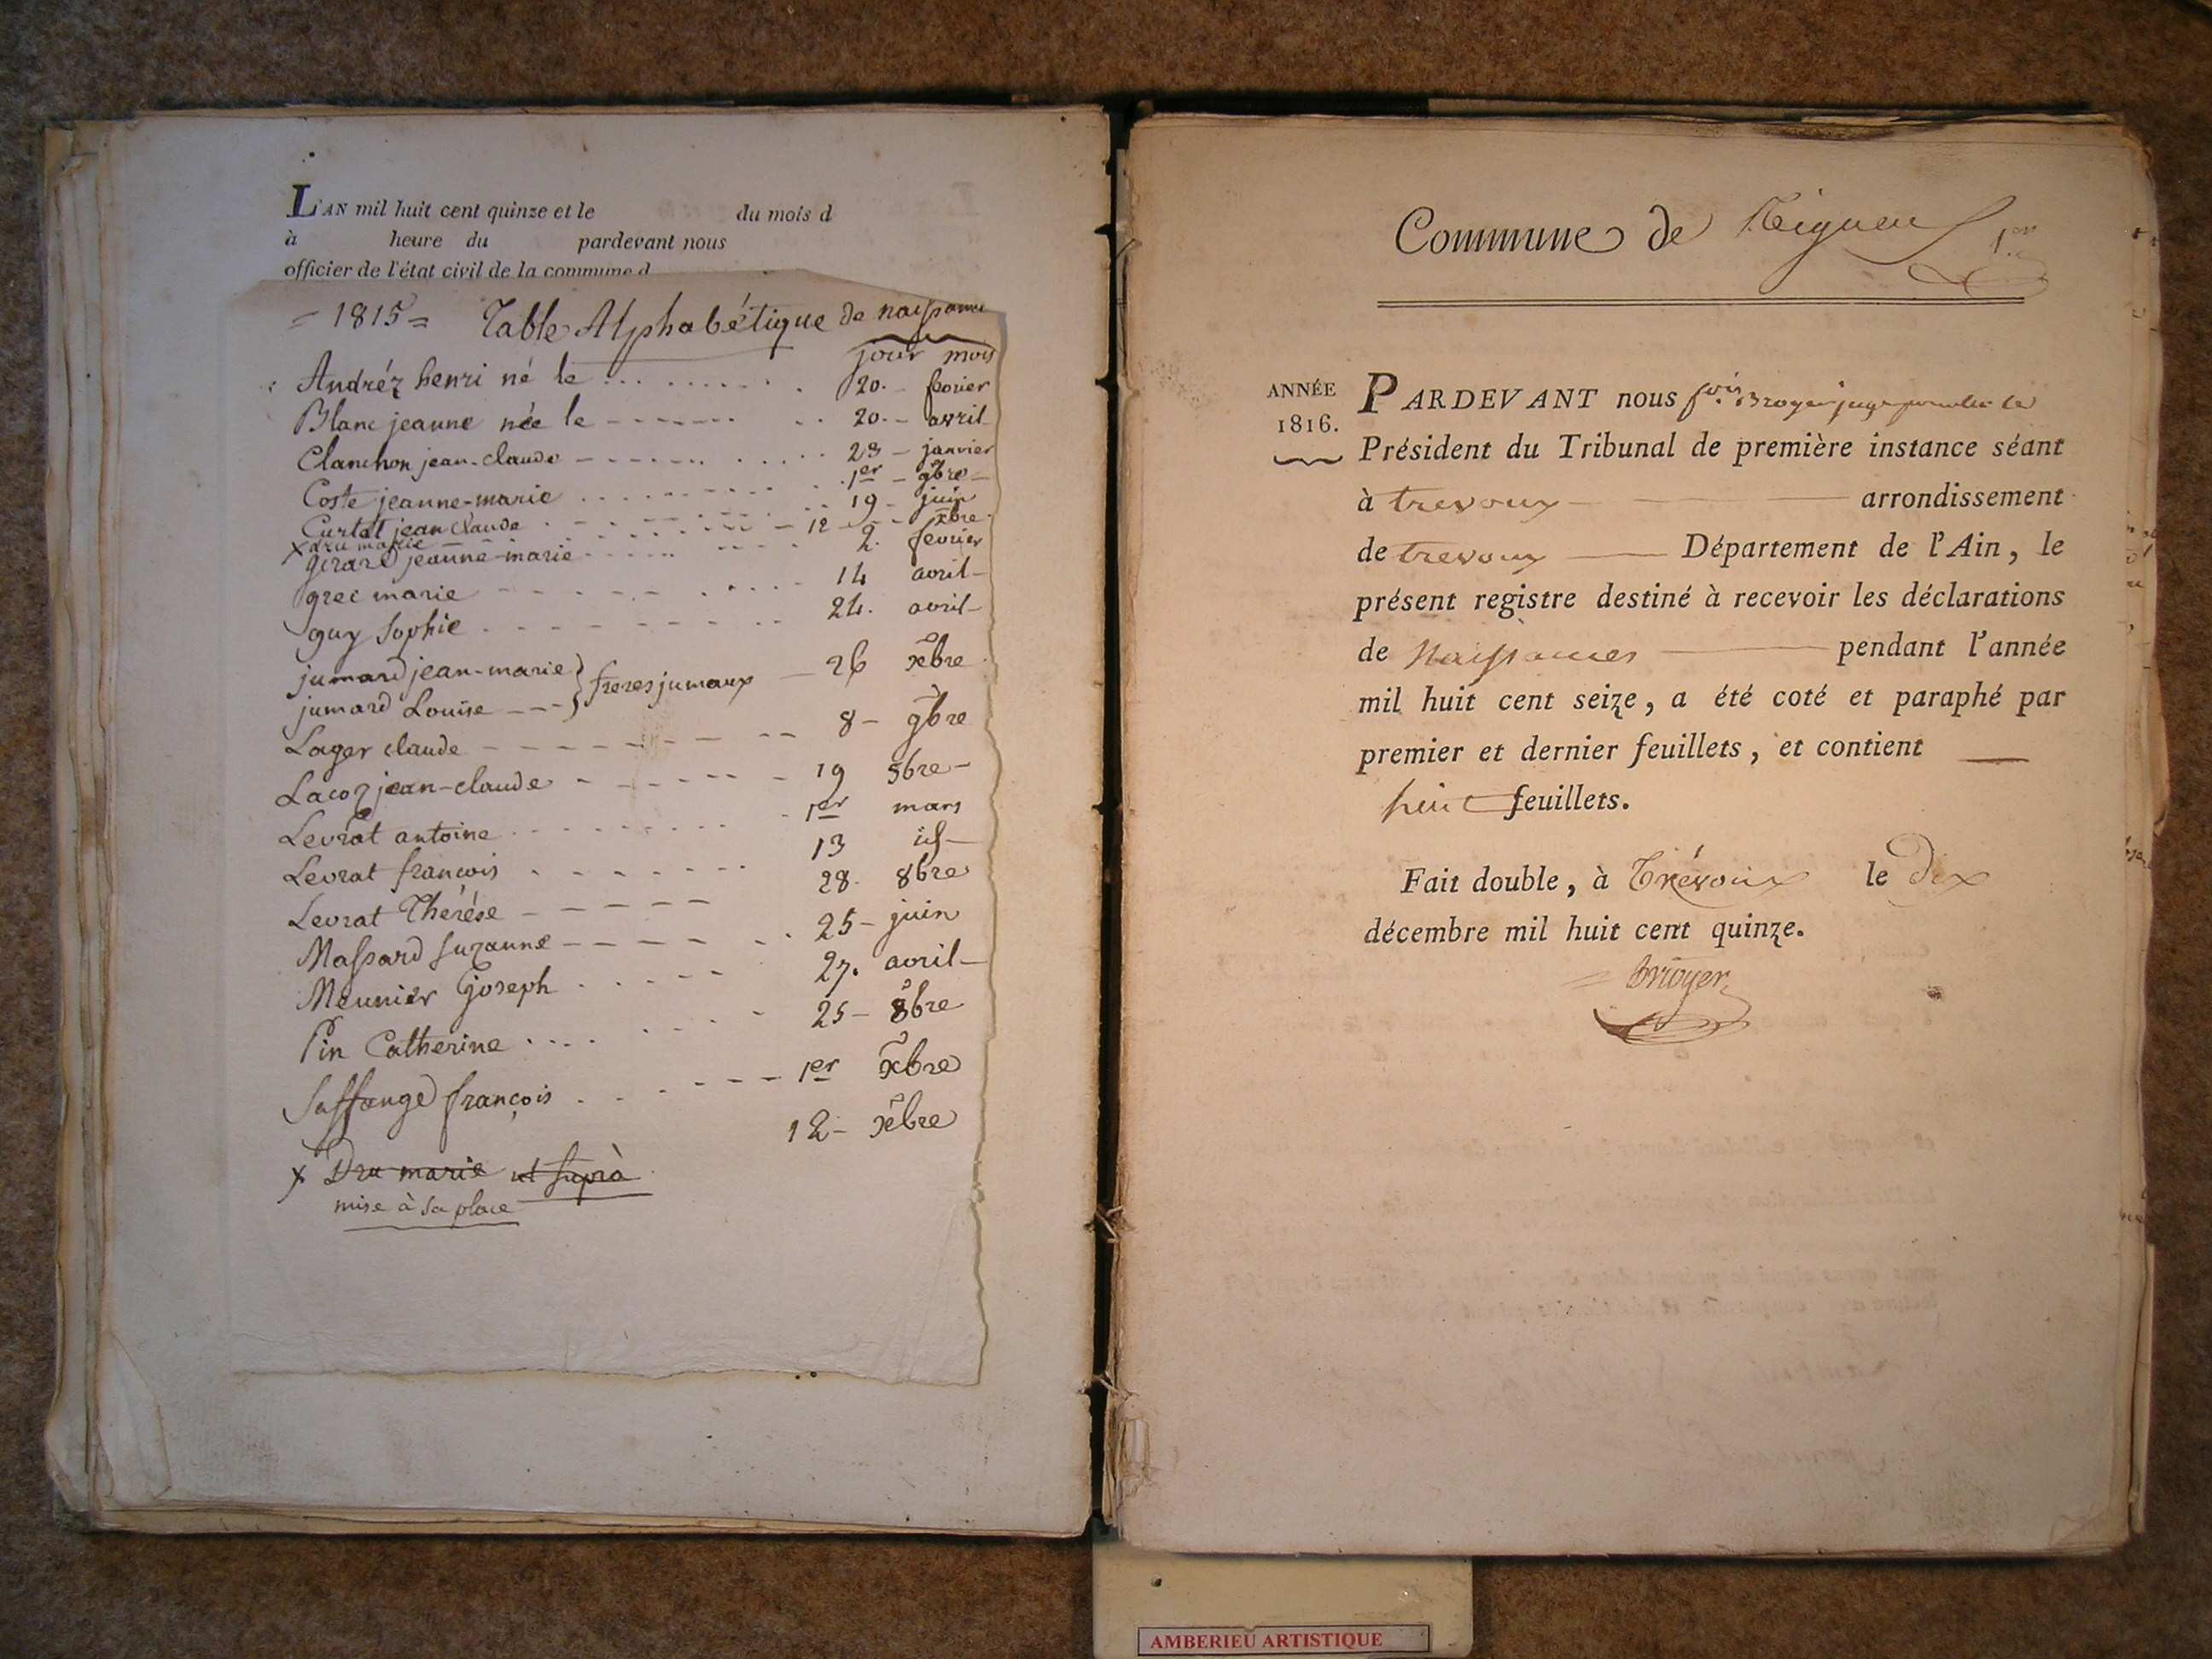 L'AN mil huit cent quinze et le du mois d
à heure du pardevant nous
officier de l'état civil de la commune d
= 1815 = Table Alphabétique de naissance
jour mois
Andréz henri né le ... 20. - fevrier
Blanc jeanne née le - - - 20. - avril
Clanchon jean-claude - - - 23 - janvier
Coste jeanne-marie . . . 1er - 9bre -
Curtat jean claude . . . 19 - juin
x dru marie - - - 12 - xbre.
girard jeanne-marie - - - 2. fevrier
grec marie - - - 14 avril -
guy Sophie - - - 24. avril -
jumard jean-marie } freres jumaux - 26 xbre
jumard Louise - - - }
Lager claude - - - 8 - 9bre
Lacoz jean-claude - - - 19 5bre -
Levrat antoine . . . 1er mars
Levrat francois - - - 13
Levrat Therése - - - 28. 8bre
Massard suzanne - - - 25 - juin
Meunier Joseph . . . 27. avril -
Pin Catherine . . . 25 - 8bre
Saffange françois . . - - - 1er xbre
12 - xbre
x Dru marie ut suprà
mise à sa place
Commune de 1er
ANNÉE
1816.
PARDEVANT nous fois Broyer juge
Président du Tribunal de première instance séant
à trevoux arrondissement
de trevoux Département de l'Ain, le
présent registre destiné à recevoir les déclarations
de Naissances pendant l'année
mil huit cent seize, a été coté et paraphé par
premier et dernier feuillets, et contient
huit feuillets.
Fait double, à Trévoux le Dix
décembre mil huit cent quinze.
= Broyer
AMBERIEU ARTISTIQUE